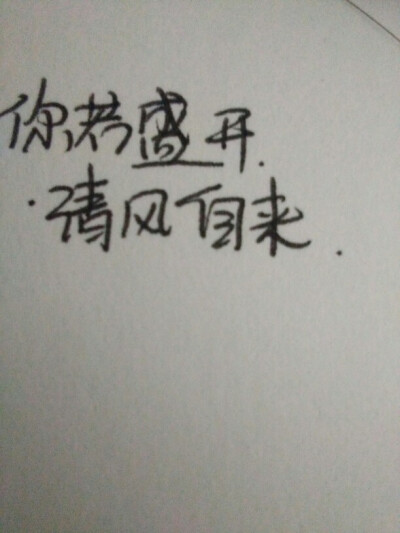 你若盛开.
清风自来.